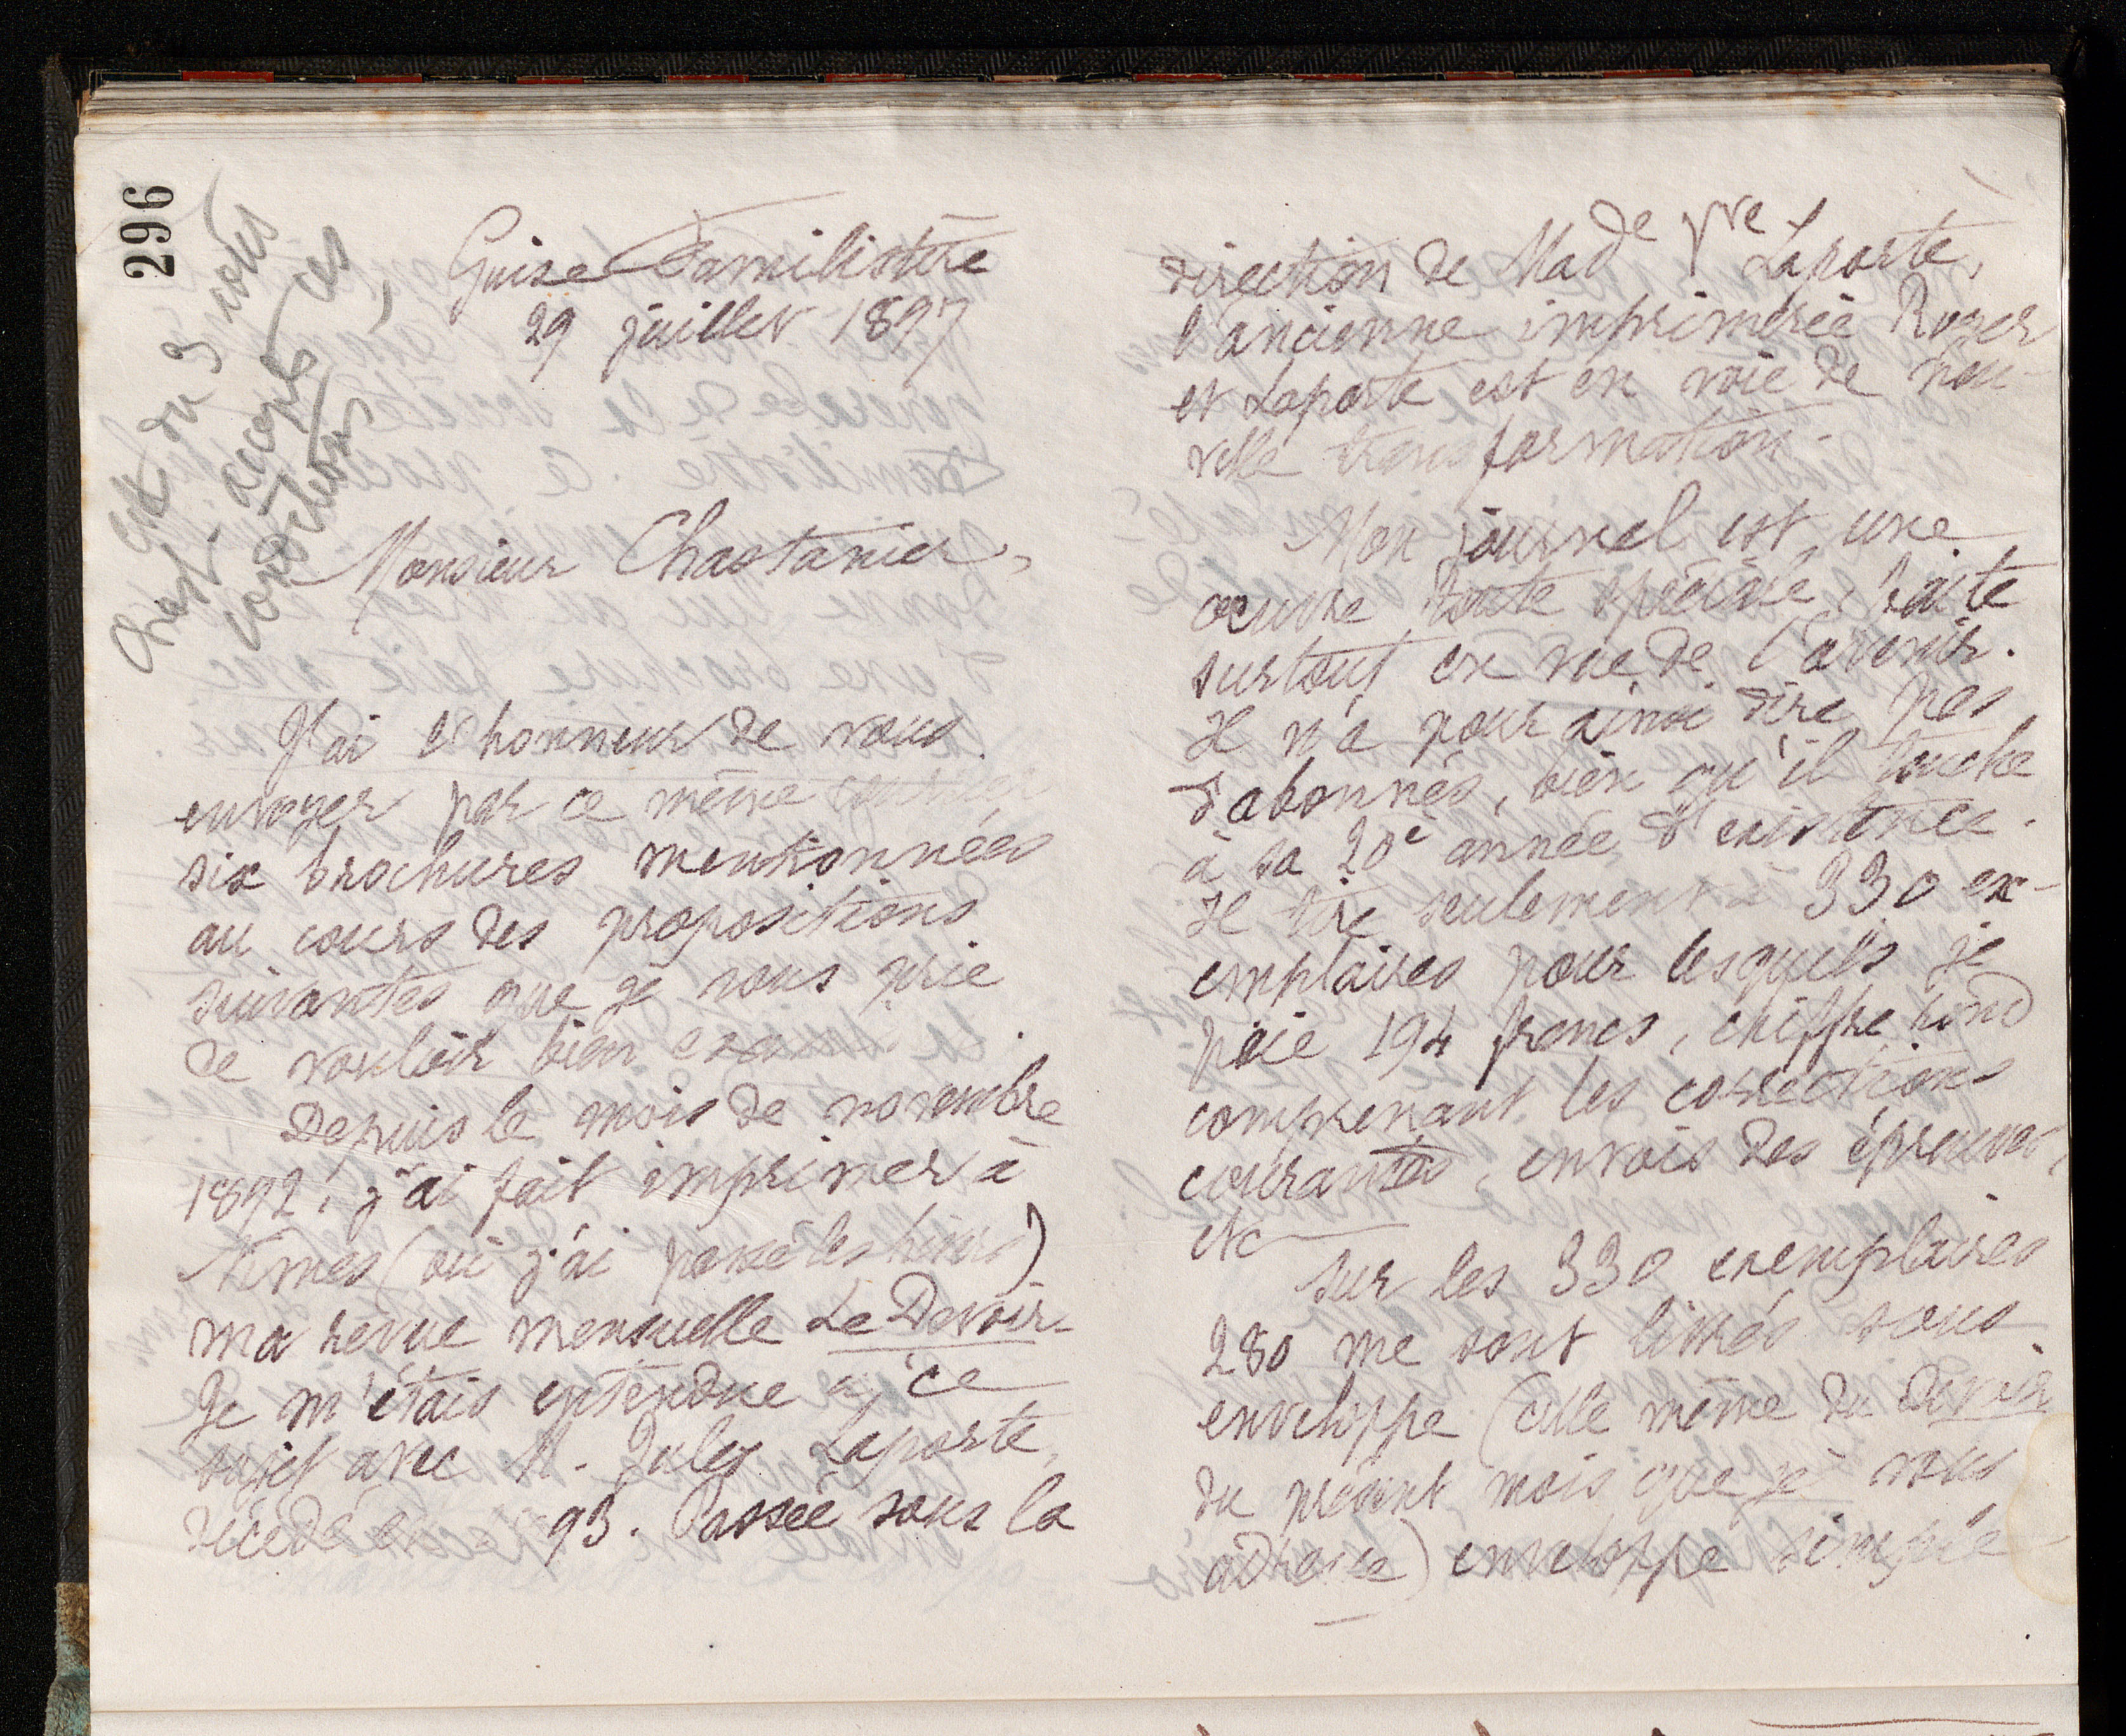 296
du 9 août
Chast. accepte ces
conditions
Guise Familistère
29 juillet 1897
Monsieur Chastanier,
J'ai l'honneur de vous
envoyer par ce même courrier
six brochures mentionnées
au cours des propositions
suivantes que je vous prie
de vouloir bien
Depuis le mois de novembre
1892, j'ai fait imprimer à
Nîmes (où j'ai passé les hivers)
ma revue mensuelle Le Devoir.
Je m'étais entendue à ce
sujet avec M. Jules Laporte,
décédé en 93. Passée sous la
direction de Made Vve Laporte,
l'ancienne imprimerie Roger
et Laporte est en voie de nou-
velle transformation.
Mon journal est une
œuvre toute spéciale, faite
surtout en vue de l'avenir.
Il n'a pour ainsi dire pas
d'abonnés, bien qu'il touche
à sa 20e année d'existence.
Il tire seulement à 330 ex-
emplaires pour lesquels je
paie 194 francs, chiffre rond
comprenant les corrections
courantes, envois des épreuves,
etc
Sur les 330 exemplaires
280 me sont livrés sous
enveloppe (celle même du Devoir
du présent mois que je vous
adresse) enveloppe simple